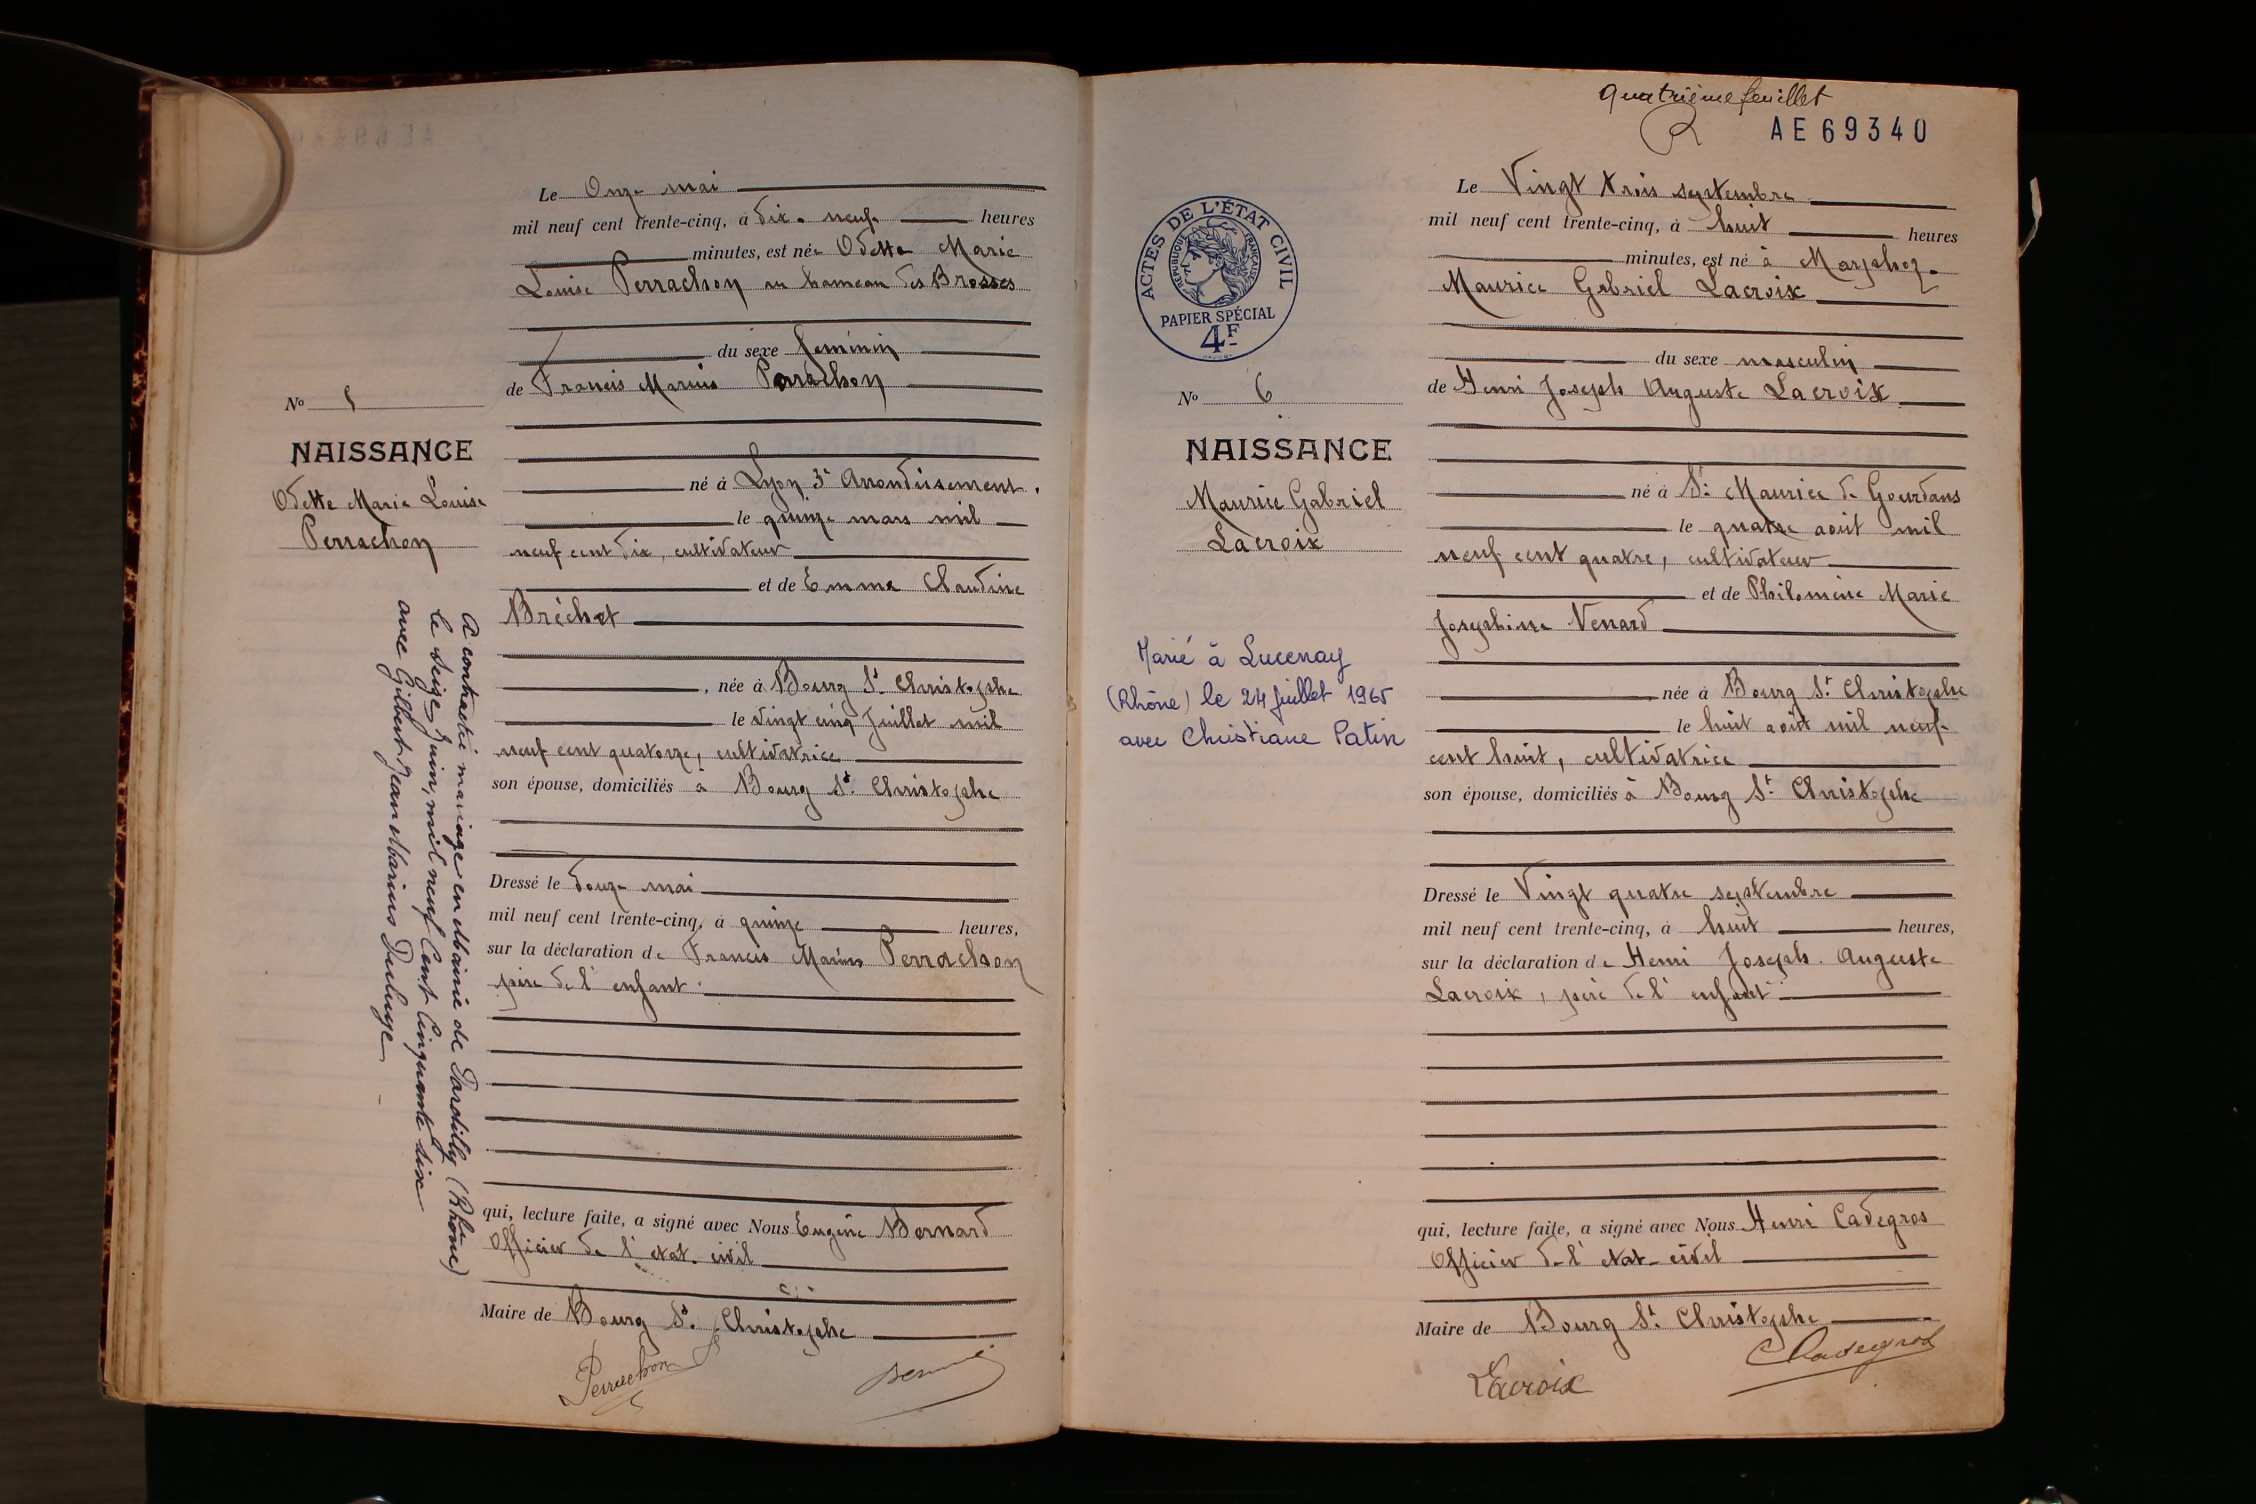 Le Onze mai
mil neuf cent trente-cinq, à dix-neuf heures
minutes, est née Odette Marie
Louise Perrachon au hameau des Brosses
du sexe féminin
de Francis Marius Perrachon
No 5
NAISSANCE
Odette Marie Louise
Perrachon
né à Lyon 3e Arrondissement,
le quinze mars mil
neuf cent dix, cultivateur
et de Emma Claudine
Bréchet
, née à Bourg St Christophe
le vingt cinq Juillet mil
neuf cent quatorze, cultivatrice
son épouse, domiciliés à Bourg St Christophe
Dressé le douze mai
mil neuf cent trente-cinq, à quinze heures,
sur la déclaration de Francis Marius Perrachon
père de l'enfant.
qui, lecture faite, a signé avec Nous Eugène Bernard
Officier de l'etat-civil
Maire de Bourg St Christophe
Perrachon
A contracté mariage en Mairie de Dardilly (Rhône)
le seize Juin, mil neuf Cent Cinquante six
avec Gilbert Jean Marius
Quatrième feuillet
AE 69340
ACTES DE L'ÉTAT CIVIL
RÉPUBLIQUE FRANÇAISE
PAPIER SPÉCIAL
4F
Le Vingt trois septembre
mil neuf cent trente-cinq, à huit heures
minutes, est né à Marphoz
Maurice Gabriel Lacroix
du sexe masculin
de Henri Joseph Auguste Lacroix
No 6
NAISSANCE
Maurice Gabriel
Lacroix
Marié à Lucenay
(Rhône) le 24 juillet 1965
avec Christiane Patin
né à St Maurice de Gourdans
le quatre août mil
neuf cent quatre, cultivateur
et de Philomène Marie
Josephine Venard
née à Bourg St Christophe
le huit août mil neuf
cent huit, cultivatrice
son épouse, domiciliés à Bourg St Christophe
Dressé le Vingt quatre septembre
mil neuf cent trente-cinq, à huit heures,
sur la déclaration de Henri Joseph Auguste
Lacroix, père de l'enfant
qui, lecture faite, a signé avec Nous Henri Cadegros
Officier de l'etat-civil
Maire de Bourg St Christophe
Lacroix
Cadegros